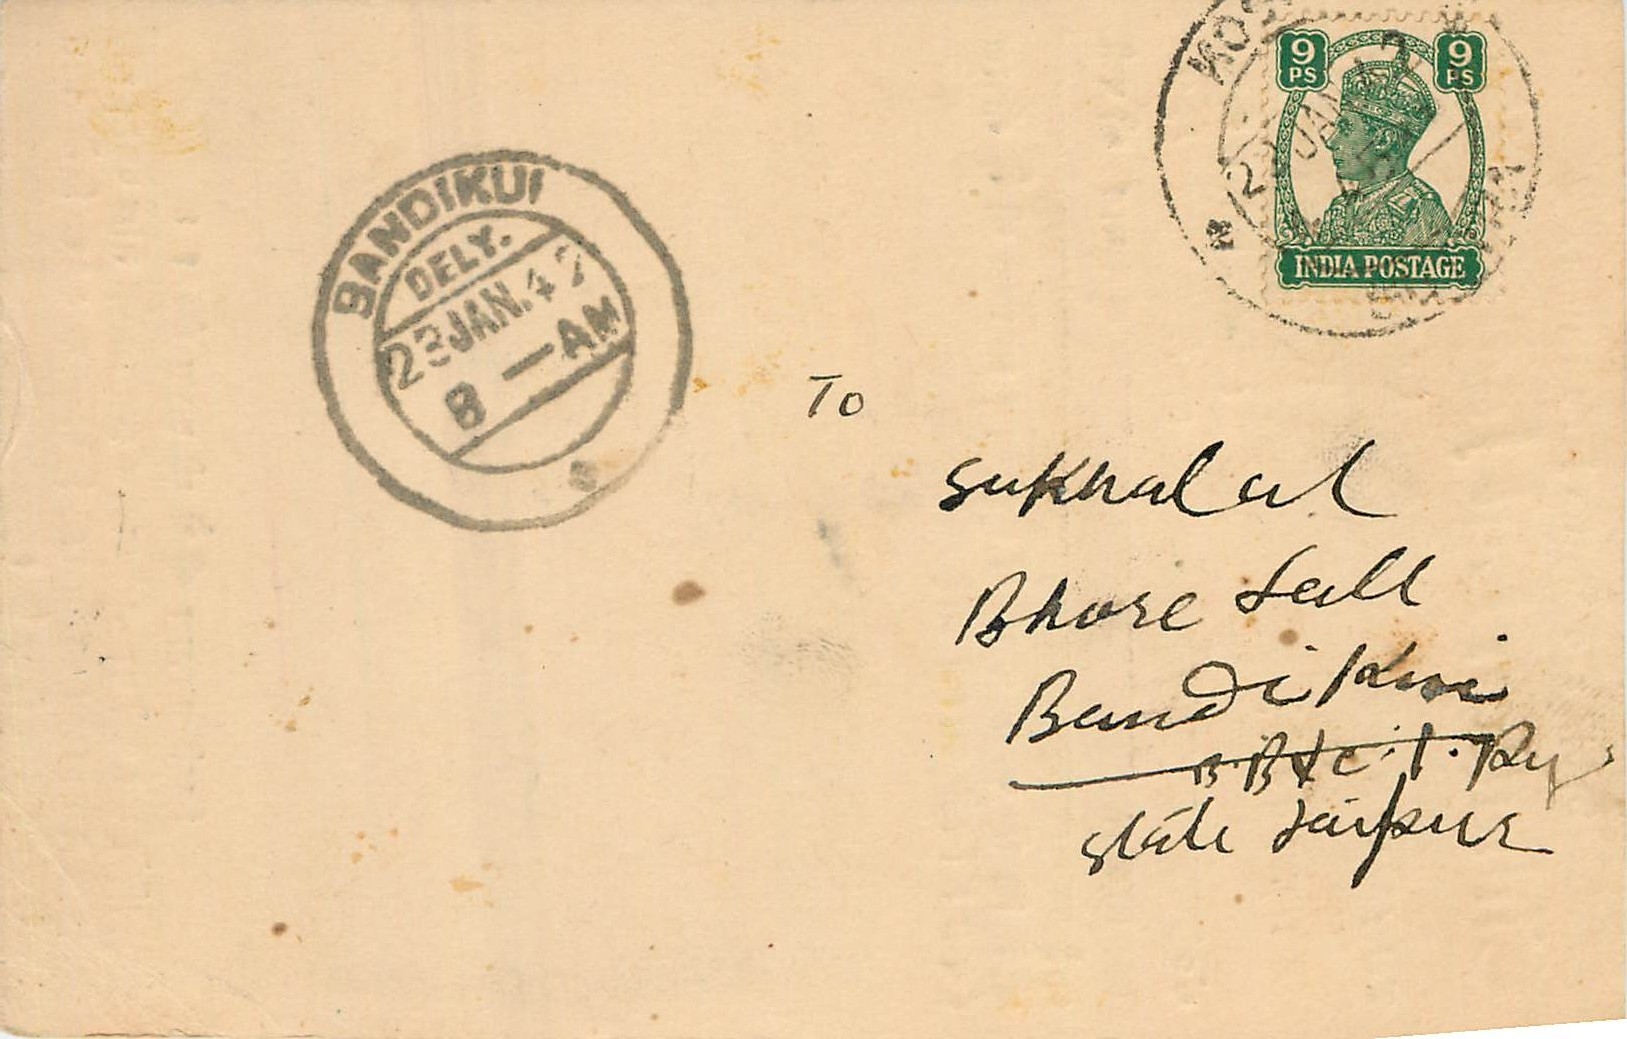 9 PS 9 PS
INDIA POSTAGE
BANDIKUI
DELY.
23 JAN. 47
8 — AM
To
Sukhalal
Bhore Lall
Bandikui
B.B & C.I. Ry.
State Jaipur